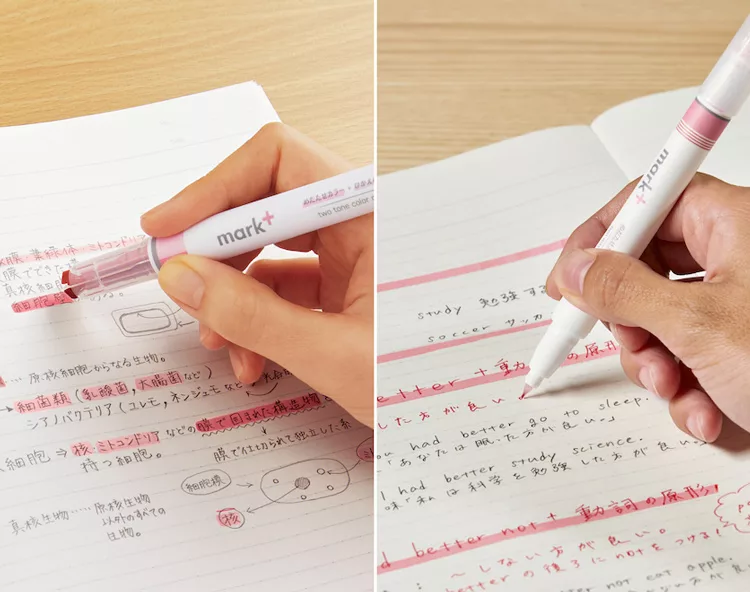 核 葉緑体 ミトコンドリア
膜でできた
真核細
細胞
mark+
two tone color
… 原核細胞からなる生物。
→ 細菌類(乳酸菌, 大腸菌など)
シアノバクテリア(ユレモ, ネンジュモなど)
細胞 ⇒ 核・ミトコンドリア などの膜で囲まれた構造物
持つ細胞。
膜で仕切られて独立した系
細胞膜
核
真核生物 …… 原核生物
以外のすべての
生物。
mark+
study 勉強する
soccer サッカ
etter + 動詞の原形
した方が良い
u had better go to sleep.
「あなたは眠った方が良い。」
I had better study science.
味「私は科学を勉強した方が良い。
d better not + 動詞の原形
: ～しない方が良い。
betterの後ろにnotをつける!
etter not eat apple.